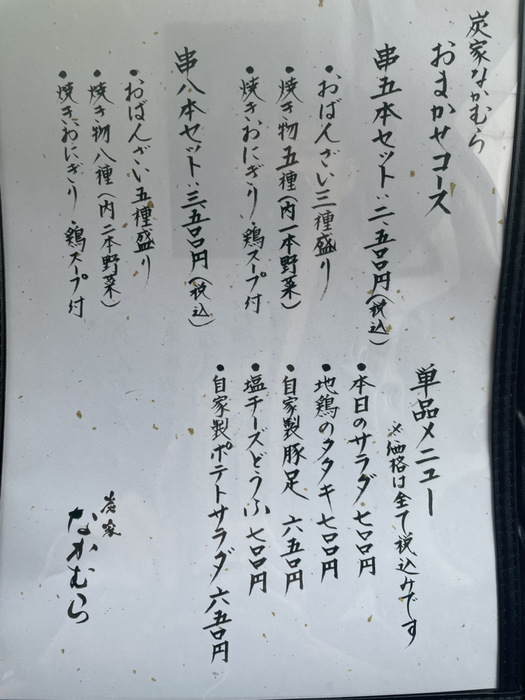 炭家なかむら
おまかせコース
串五本セット：二、五〇〇円（税込）
・おばんざい三種盛り
・焼き物五種（内一本野菜）
・焼きおにぎり、鶏スープ付
串八本セット：三、五〇〇円（税込）
・おばんざい五種盛り
・焼き物八種（内二本野菜）
・焼きおにぎり、鶏スープ付
単品メニュー
※価格は全て税込みです
・本日のサラダ 七〇〇円
・地鶏のタタキ 七〇〇円
・自家製豚足 六五〇円
・塩チーズどうふ 七〇〇円
・自家製ポテトサラダ 六五〇円
炭家
なかむら